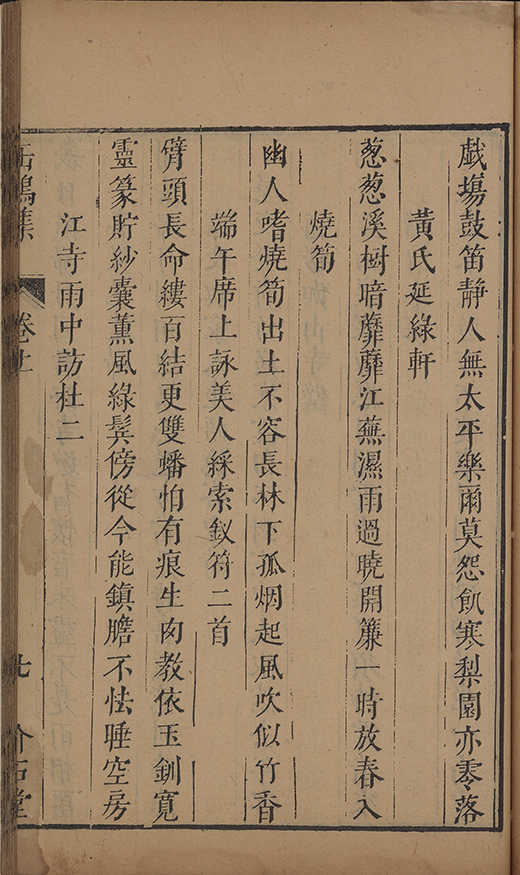 戲塲鼓笛靜人無太平樂爾莫怨飢寒梨園亦零落
黃氏延綠軒
葱葱溪樹暗靡靡江蕪濕雨過曉開簾一時放春入
燒筍
幽人嗜燒筍出土不容長林下孤烟起風吹似竹香
端午席上詠美人綵索釵符二首
臂頭長命縷百結更雙蟠怕有痕生肉教依玉釧寬
靈篆貯紗囊薰風綠鬓傍從今能鎮膽不怯睡空房
江寺雨中訪杜二
缶鳴集
卷十
七
介石堂